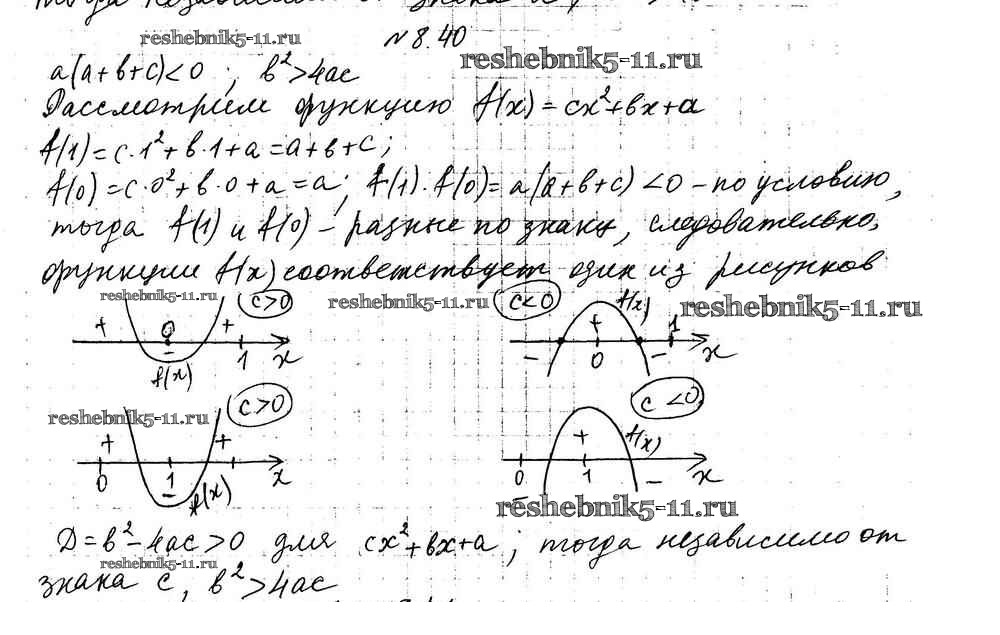 reshebnik5-11.ru
№ 8.40
reshebnik5-11.ru
a(a+b+c)<0 ; b²>4ac
Рассмотрим функцию f(x)=cx²+bx+a
f(1)=c·1²+b·1+a=a+b+c;
f(0)=c·0²+b·0+a=a; f(1)·f(0)=a(a+b+c)<0 – по условию,
тогда f(1) и f(0) – разные по знаку, следовательно,
функции f(x) соответствует один из рисунков
reshebnik5-11.ru c>0 reshebnik5-11.ru c<0 f(x) reshebnik5-11.ru
+ 0 + + 1
– 1 x – 0 – x
f(x)
reshebnik5-11.ru c>0 c<0
+ + + f(x)
0 1 x 0 1 x
– f(x) – –
reshebnik5-11.ru
D=b²–4ac>0 для cx²+bx+a; тогда независимо от
reshebnik5-11.ru
знака c, b²>4ac